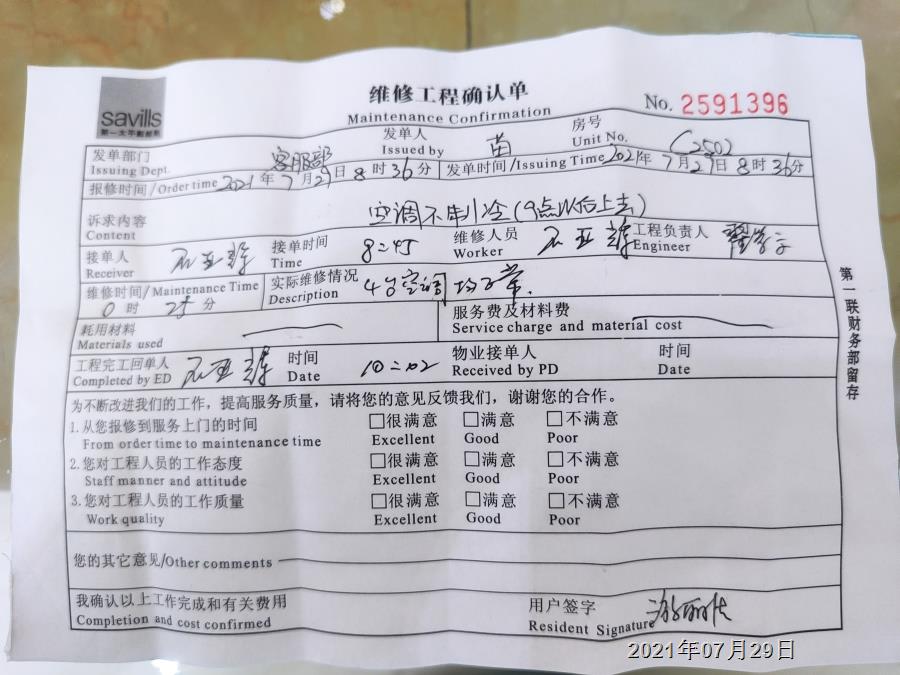 savills
第一太平戴维斯
维修工程确认单
Maintenance Confirmation
No. 2591396
发单部门 客服部 发单人 苗 房号 (2502)
Issuing Dept. Issued by Unit No.
报修时间/Order time 2021年7月29日8时36分 发单时间/Issuing Time 2021年7月29日8时36分
诉求内容 空调不制冷(9点以后上去)
Content
接单人 石亚 接单时间 8:45 维修人员 石亚 工程负责人
Receiver Time Worker Engineer
维修时间/Maintenance Time 实际维修情况 4台空调均正常.
0时25分 Description
耗用材料 服务费及材料费
Materials used Service charge and material cost
工程完工回单人 石亚 时间 10:02 物业接单人 时间
Completed by ED Date Received by PD Date
为不断改进我们的工作，提高服务质量，请将您的意见反馈我们，谢谢您的合作。
1.从您报修到服务上门的时间 □很满意 □满意 □不满意
From order time to maintenance time Excellent Good Poor
2.您对工程人员的工作态度 □很满意 □满意 □不满意
Staff manner and attitude Excellent Good Poor
3.您对工程人员的工作质量 □很满意 □满意 □不满意
Work quality Excellent Good Poor
您的其它意见/Other comments
我确认以上工作完成和有关费用 用户签字
Completion and cost confirmed Resident Signature
第一联财务部留存
2021年07月29日